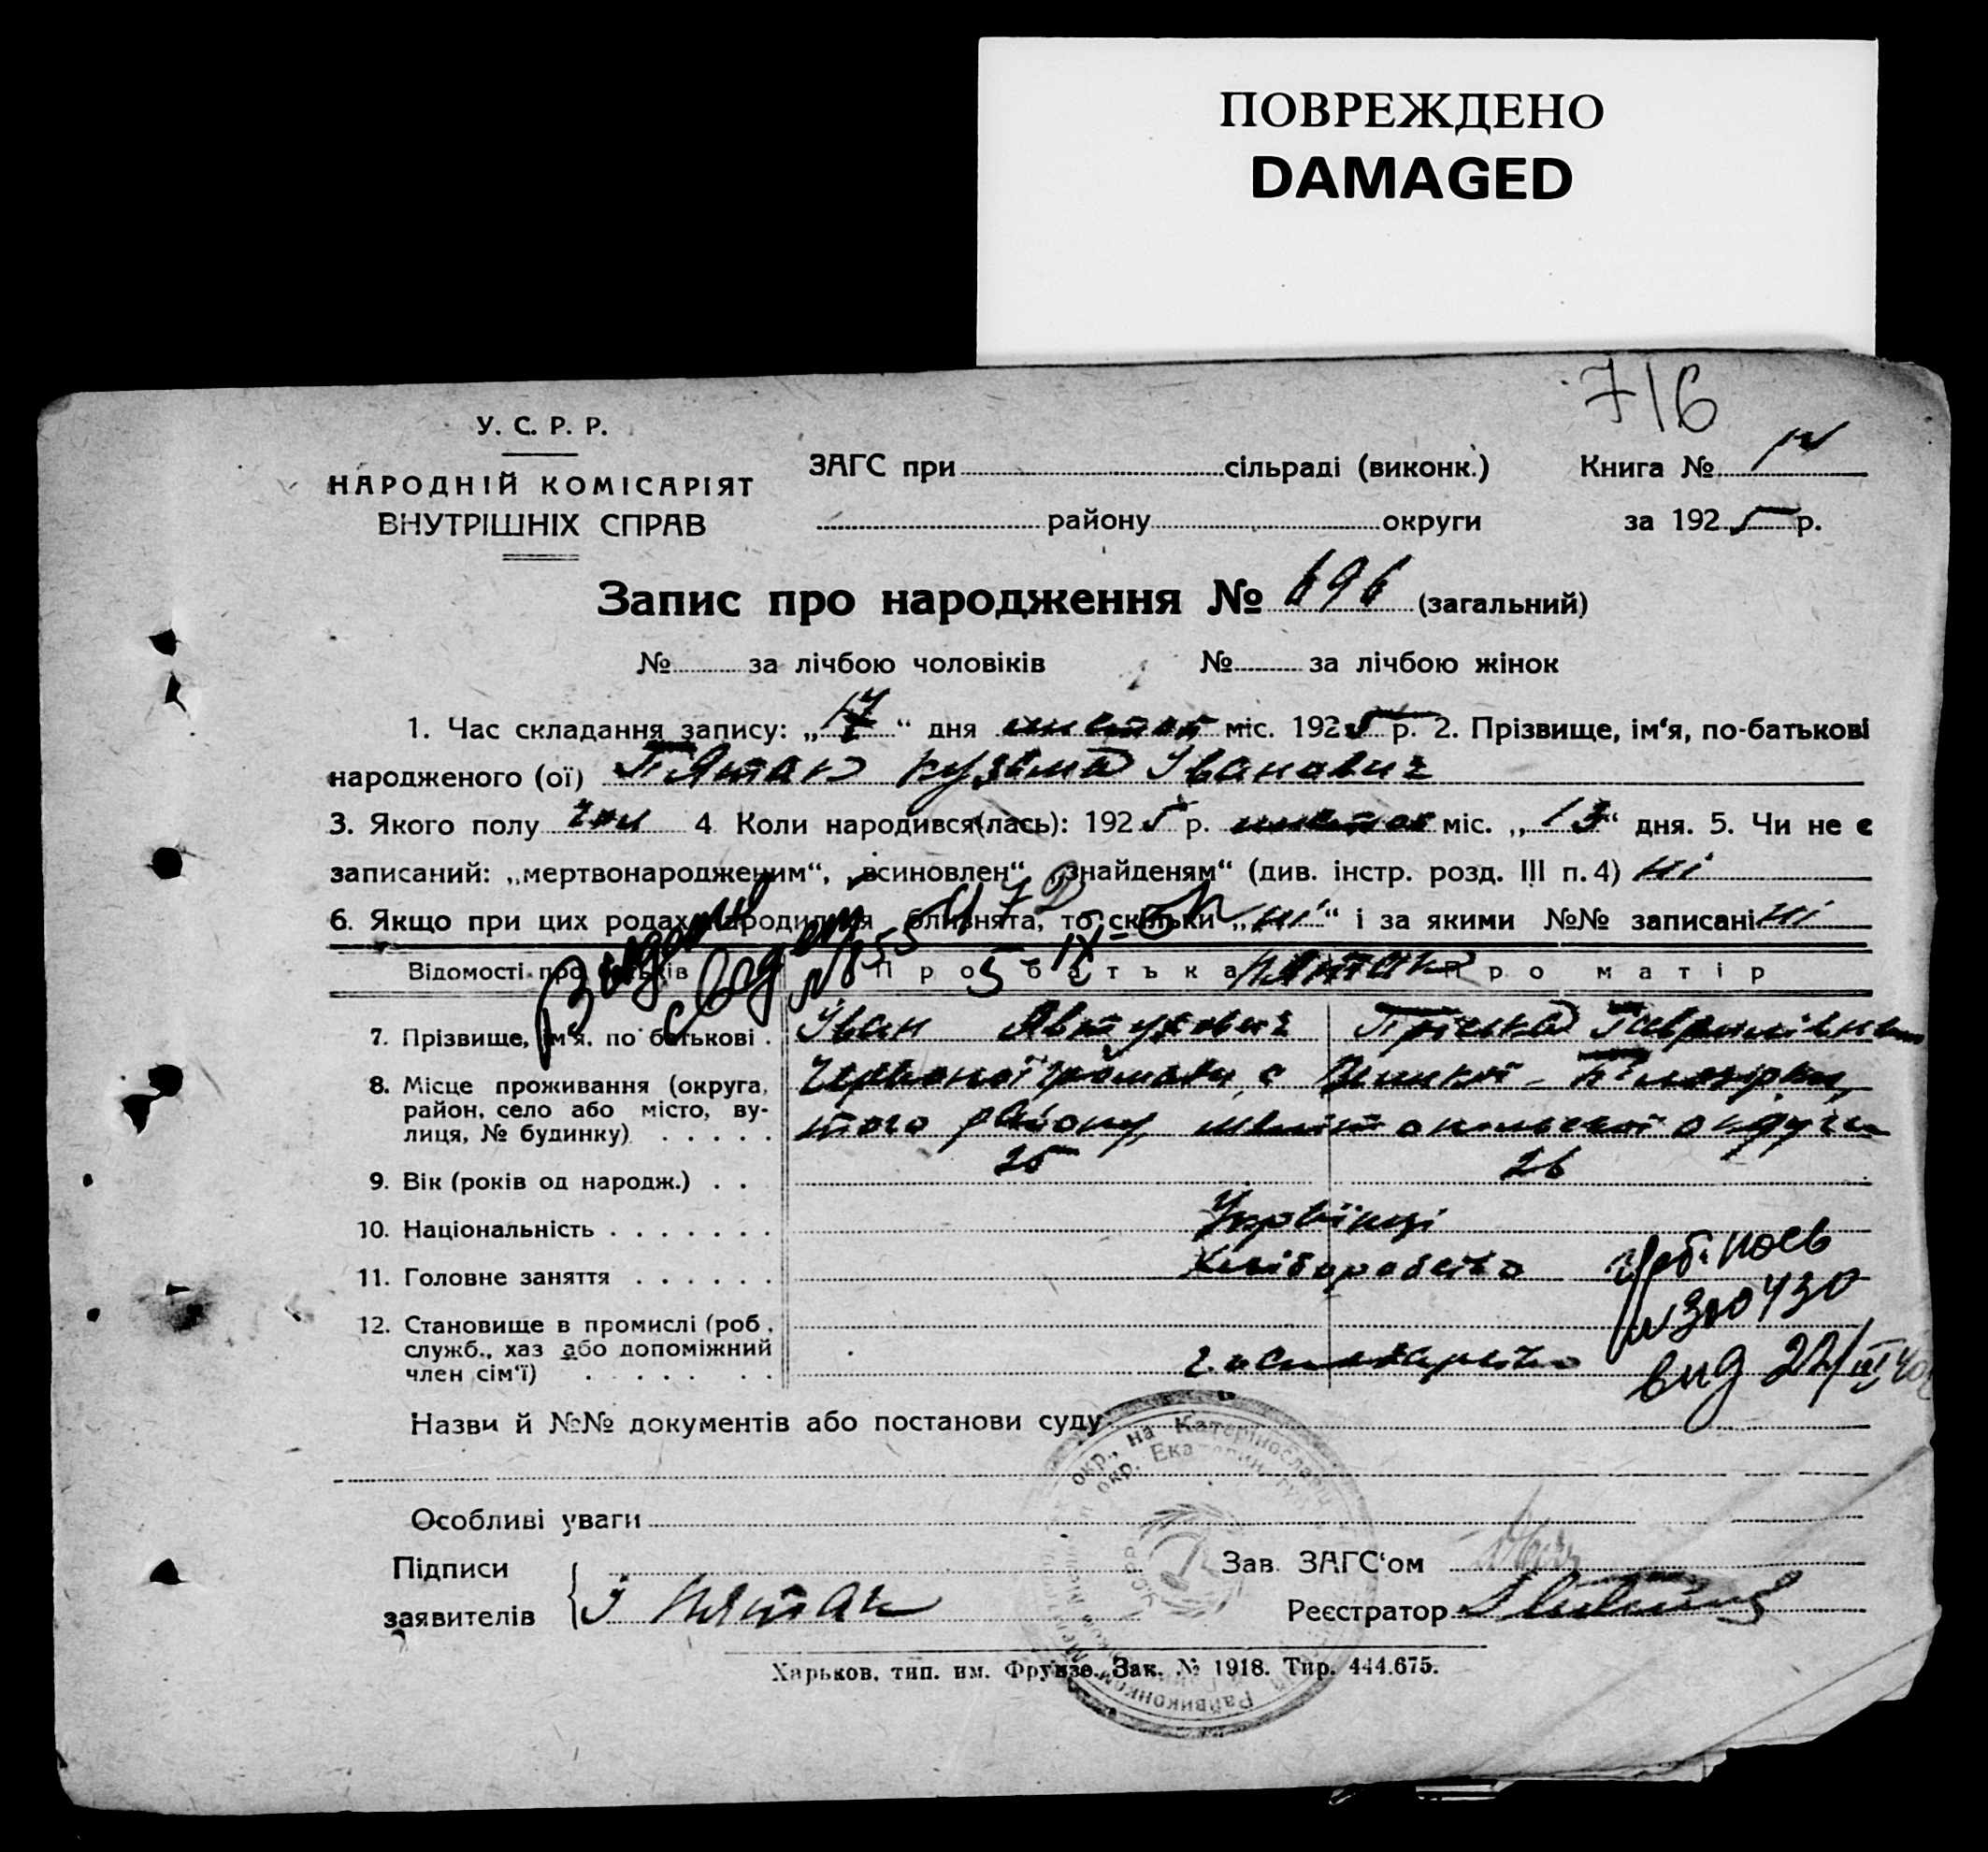 ПОВРЕЖДЕНО
DAMAGED
716
У. С. Р. Р.
НАРОДНІЙ КОМІСАРІЯТ
ВНУТРІШНІХ СПРАВ
ЗАГС при сільраді (виконк.) Книга №
району округи за 1925 р.
Запис про народження № 696 (загальний)
№ за лічбою чоловіків № за лічбою жінок
1. Час складання запису: „17“ дня міс. 1925 р. 2. Прізвище, ім‘я, по-батькові
народженого (ої) Пятак Кузьма Іванович
3. Якого полу чол 4 Коли народився(лась): 1925 р. міс. „13“ дня. 5. Чи не є
записаний: „мертвонародженим“, „всиновлен“, „знайденям“ (див. інстр. розд. III п. 4) ні
6. Якщо при цих родах народилися близнята, то скільки „ні“ і за якими №№ записані ні
Відомості про батьків Про батька Пятак Про матір
7. Прізвище, ім‘я, по батькові . Іван Автухович Пріська Гаврилівна
8. Місце проживання (округа, Червоної громади, с Великої-Білозірки,
район, село або місто, ву- того району, Мелітопольської округи
лиця, № будинку) . . . . .
9. Вік (років од народж.) . . 25 26
10. Національність . . . . . . . Українці
11. Головне заняття . . . . . . Хліборобство
12. Становище в промислі (роб.,
служб., хаз або допоміжний
член сім‘ї) . . . . . . .
№ 300430
вид 22/III 40
Назви й №№ документів або постанови суду
Особливі уваги
Підписи
заявителів І Пятак
Зав. ЗАГС‘ом
Реєстратор
Харьков, тип. им. Фрунзе. Зак. № 1918. Тир. 444.675.